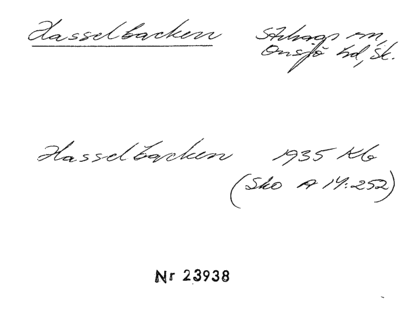 Hasselbacken Stehags sn,
Onsjö hd, Sk.
Hasselbacken 1935 Kb
(Sko A 14:252)
Nr 23938